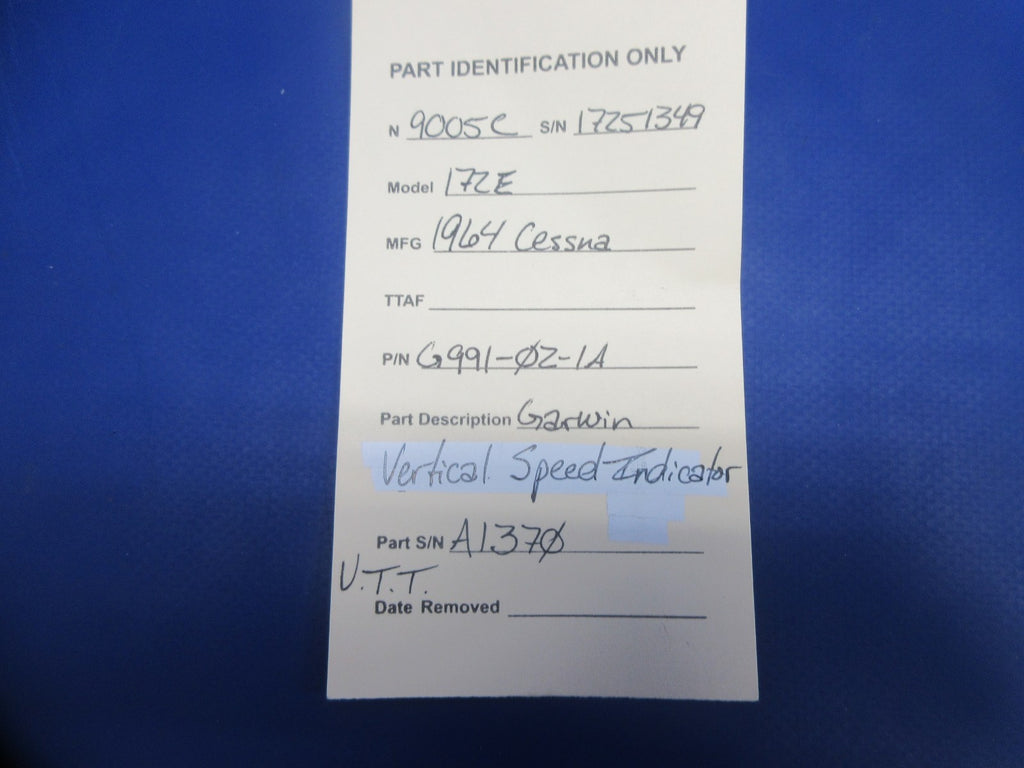 PART IDENTIFICATION ONLY
N 9005C S/N 17251349
Model 172E
MFG 1964 Cessna
TTAF
P/N G991-Ø2-1A
Part Description Garwin
Vertical Speed Indicator
Part S/N A137Ø
V.T.T.
Date Removed